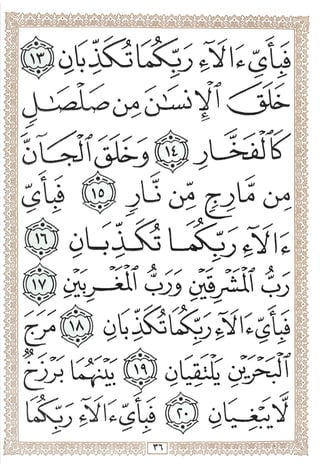 فَبِأَيِّ ءَالَآءِ رَبِّكُمَا تُكَذِّبَانِ ١٣
خَلَقَ ٱلْإِنسَٰنَ مِن صَلْصَٰلٍ
كَٱلْفَخَّارِ ١٤ وَخَلَقَ ٱلْجَآنَّ
مِن مَّارِجٍ مِّن نَّارٍ ١٥ فَبِأَيِّ
ءَالَآءِ رَبِّكُمَا تُكَذِّبَانِ ١٦
رَبُّ ٱلْمَشْرِقَيْنِ وَرَبُّ ٱلْمَغْرِبَيْنِ ١٧
فَبِأَيِّ ءَالَآءِ رَبِّكُمَا تُكَذِّبَانِ ١٨ مَرَجَ
ٱلْبَحْرَيْنِ يَلْتَقِيَانِ ١٩ بَيْنَهُمَا بَرْزَخٌ
لَّا يَبْغِيَانِ ٢٠ فَبِأَيِّ ءَالَآءِ رَبِّكُمَا
٣٦